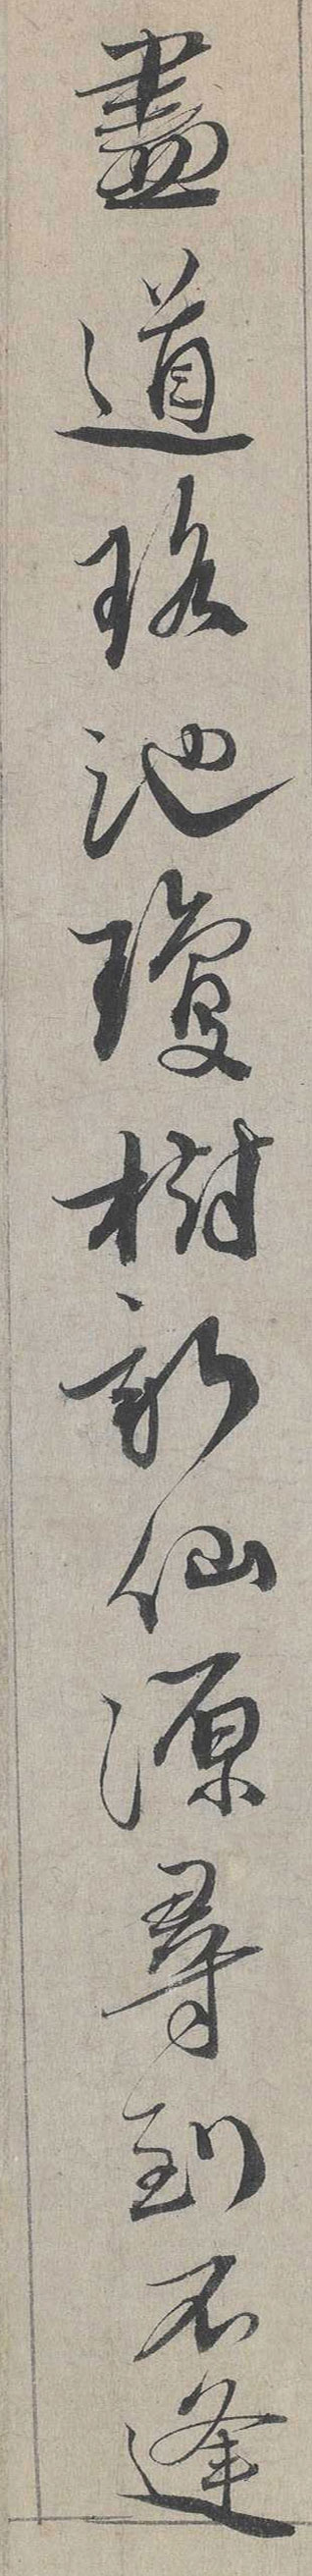 盡道瑤池瓊樹新仙源尋到不逢